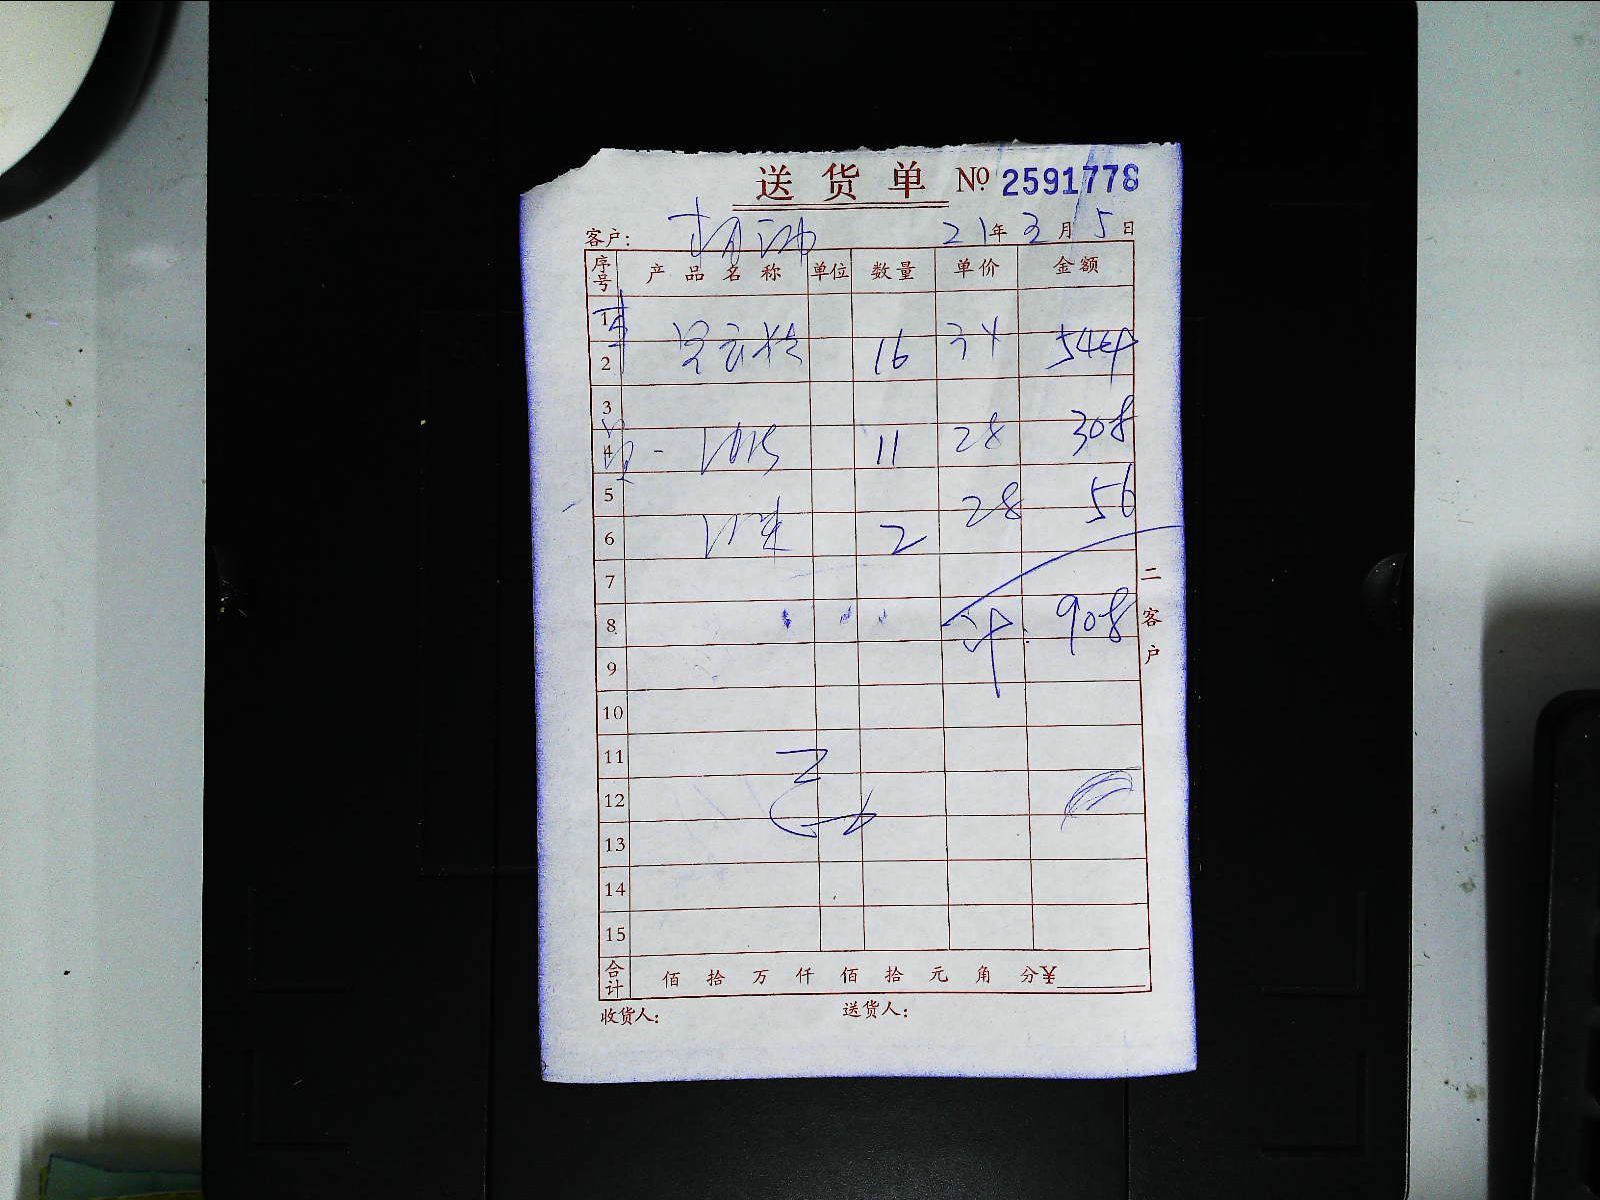 送货单 № 2591778
客户： 21年3月5日
序号 产品名称 单位 数量 单价 金额
1
2 16 34 544
3
4 11 28 308
5 28 56
6 2
7
8 908
9
10
11
12
13
14
15
合计 佰 拾 万 仟 佰 拾 元 角 分¥
收货人： 送货人：
二客户